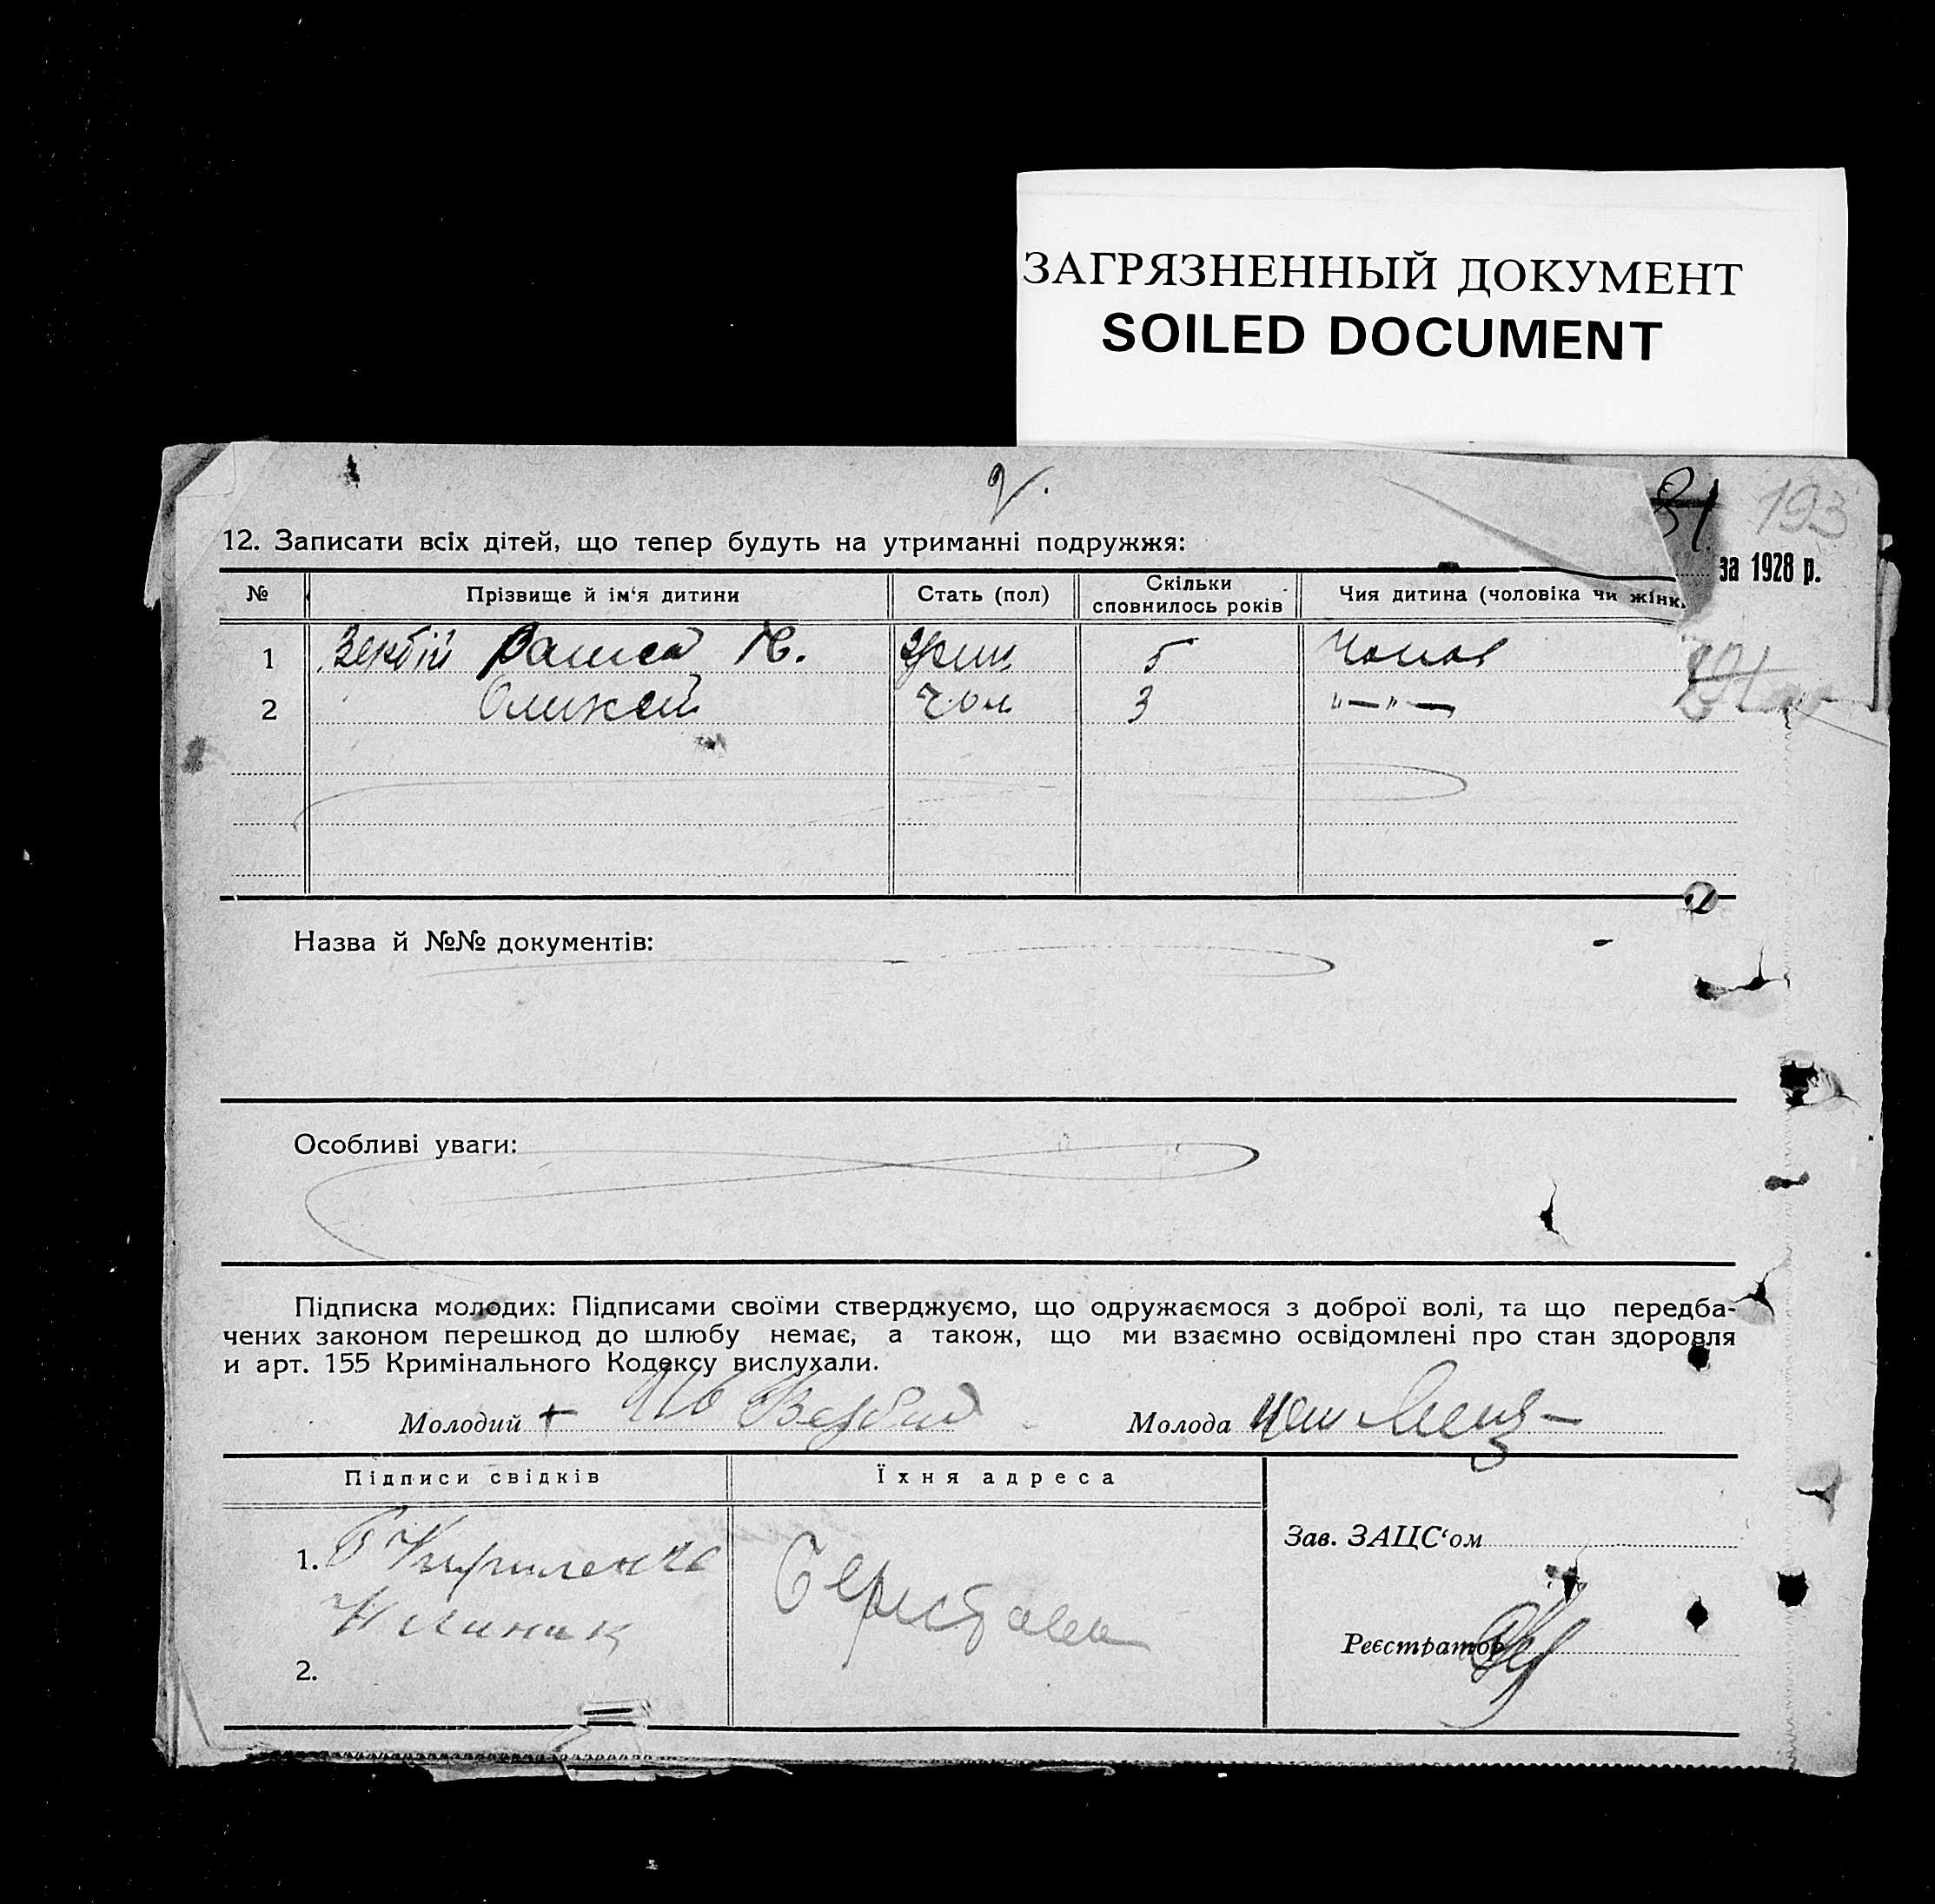 ЗАГРЯЗНЕННЫЙ ДОКУМЕНТ
SOILED DOCUMENT
193
за 1928 р.
12. Записати всіх дітей, що тепер будуть на утриманні подружжя:
№ Прізвище й ім‘я дитини Стать (пол) Скільки сповнилось років Чия дитина (чоловіка чи жінк
1 5
2 Олексій чол 3 "—"—
Назва й №№ документів:
Особливі уваги:
Підписка молодих: Підписами своїми стверджуємо, що одружаємося з доброї волі, та що передба-
чених законом перешкод до шлюбу немає, а також, що ми взаємно освідомлені про стан здоровля
и арт. 155 Кримінального Кодексу вислухали.
Молодий + Молода
Підписи свідків Їхня адреса
Зав. ЗАЦС‘ом
1. Кириленко
Реєстратор
2.